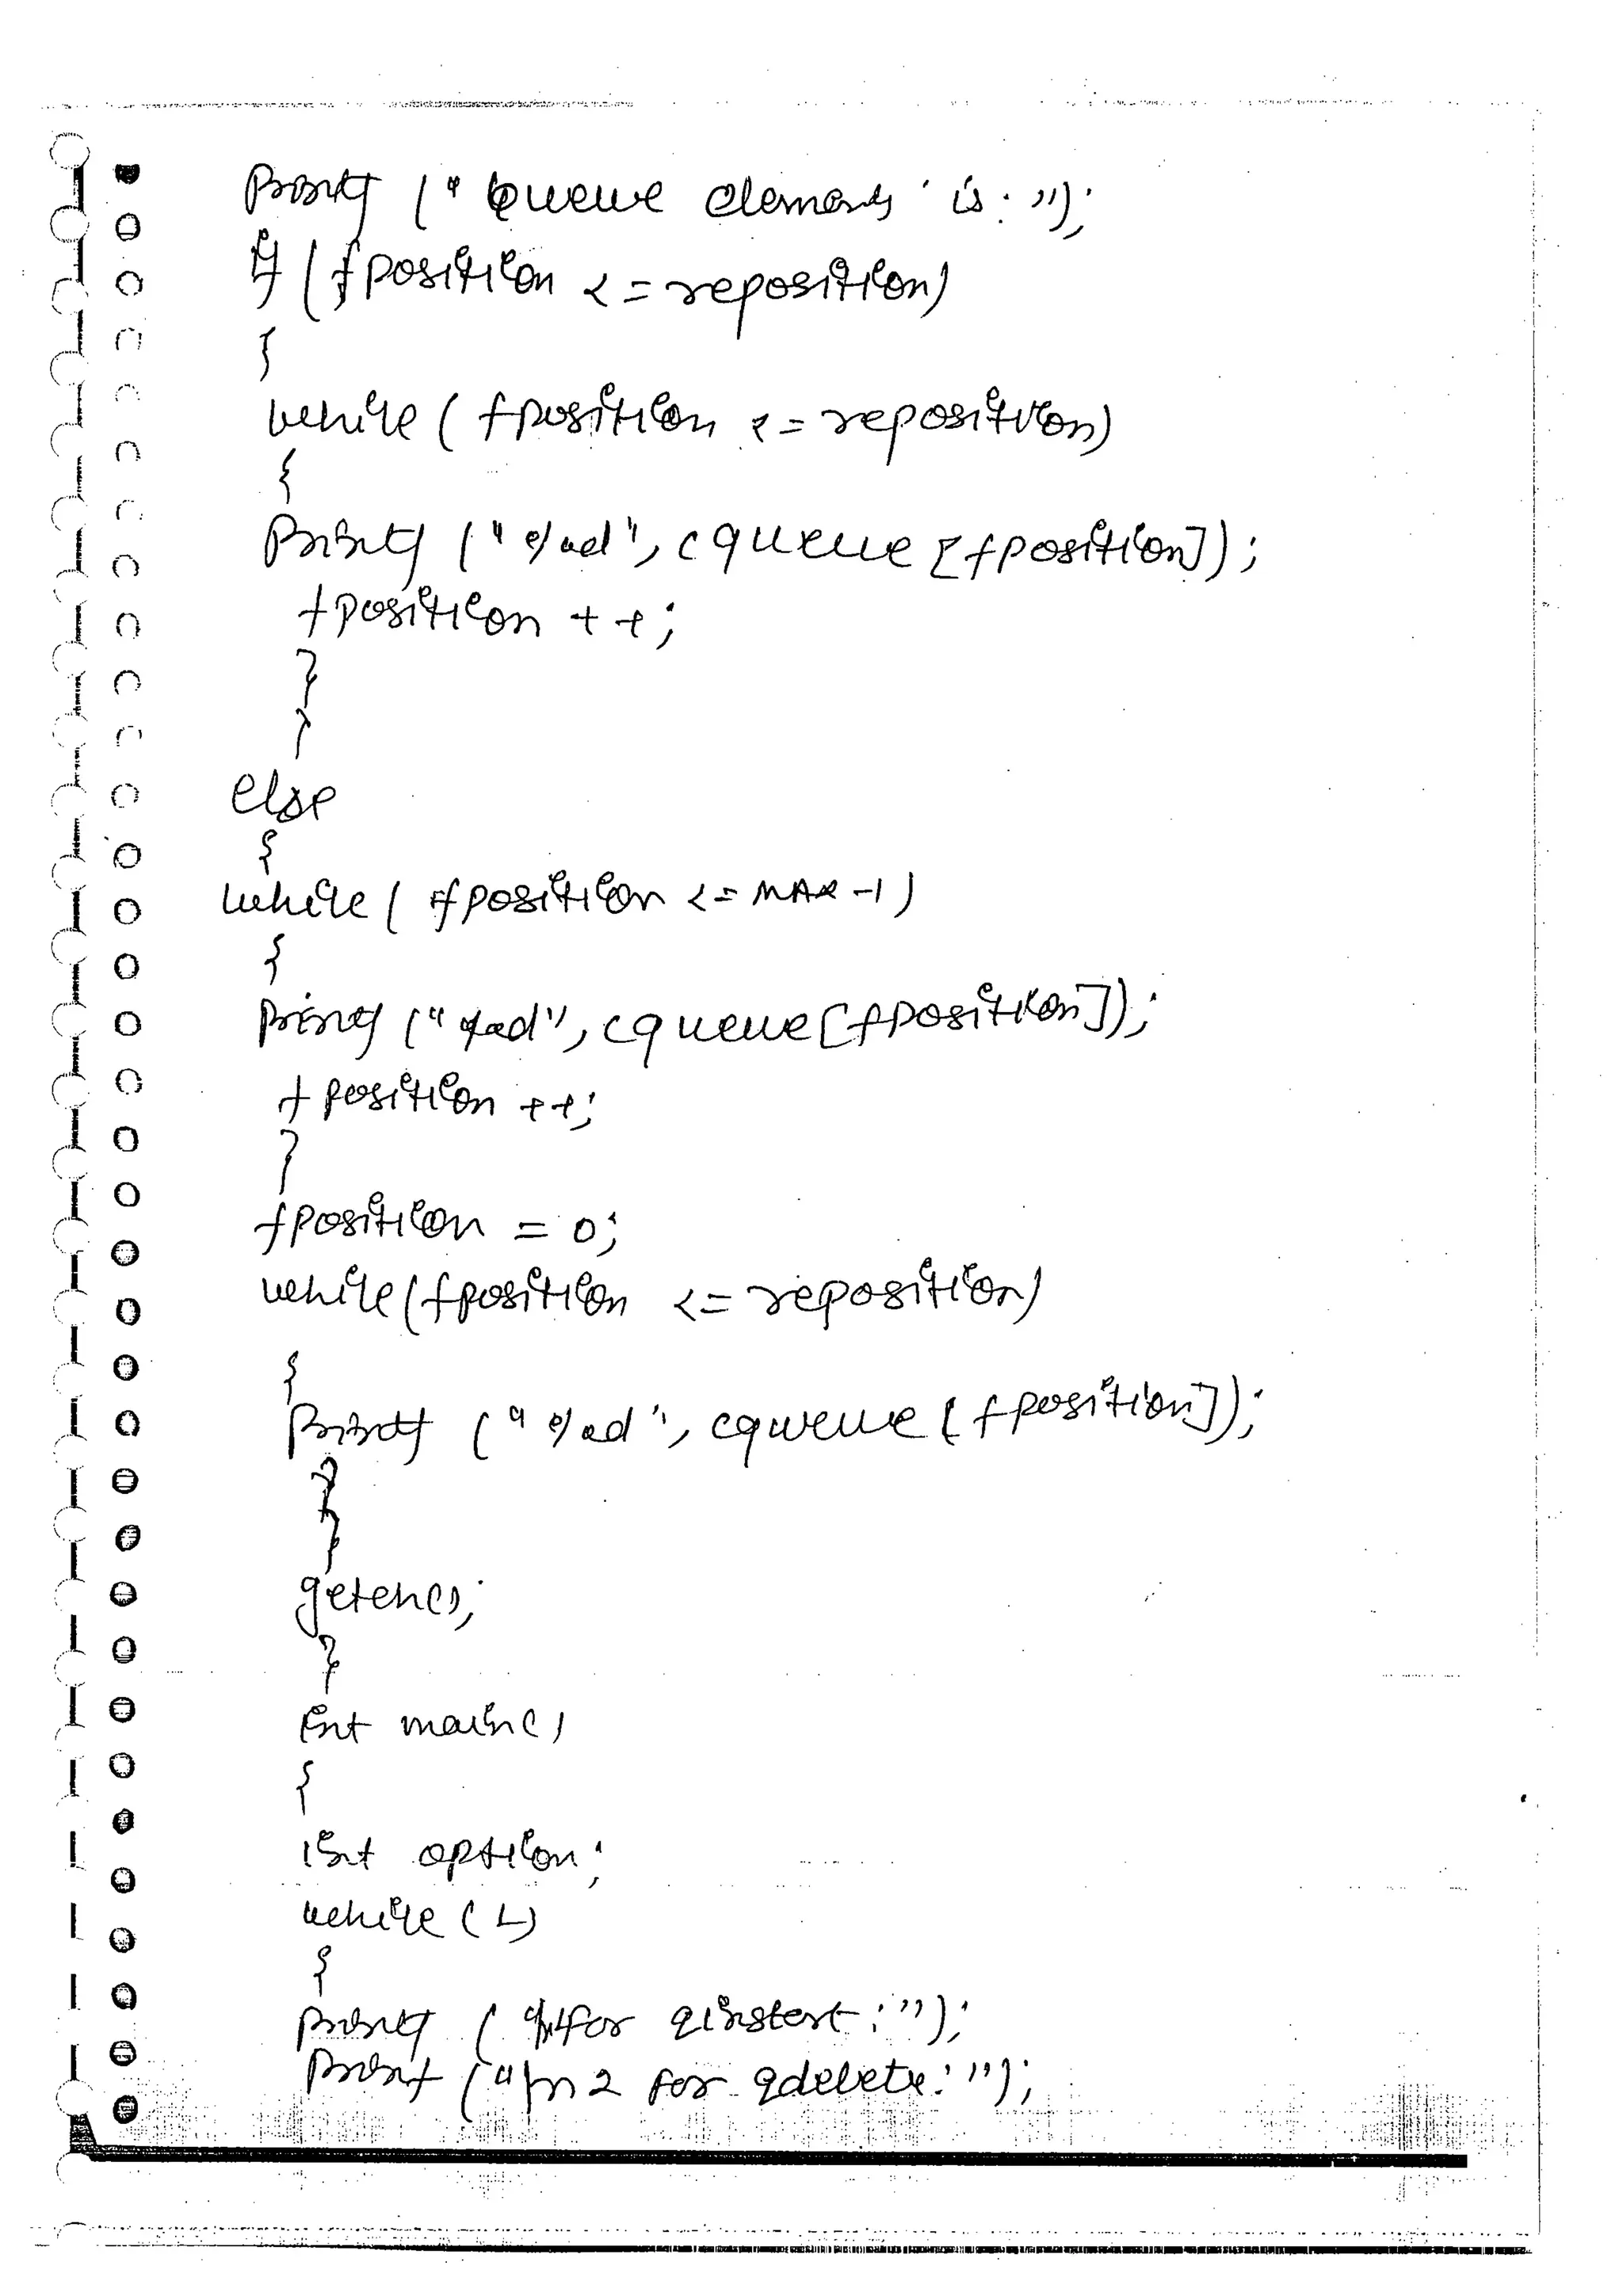 printf (" Queue elements is: ");
if (fposition <= reposition)
{
while ( fposition <= reposition)
{
printf (" %d", cqueue [fposition]);
fposition ++;
}
}
else
{
while ( fposition <= MAX -1 )
{
printf (" %d", cqueue [fposition]);
fposition ++;
}
fposition = 0;
while (fposition <= reposition)
{
printf (" %d", cqueue [fposition]);
}
}
getch();
}
int main()
{
int option;
while (1)
{
printf ( for qinstert: ");
print ("\n 2 for qdelete: ");